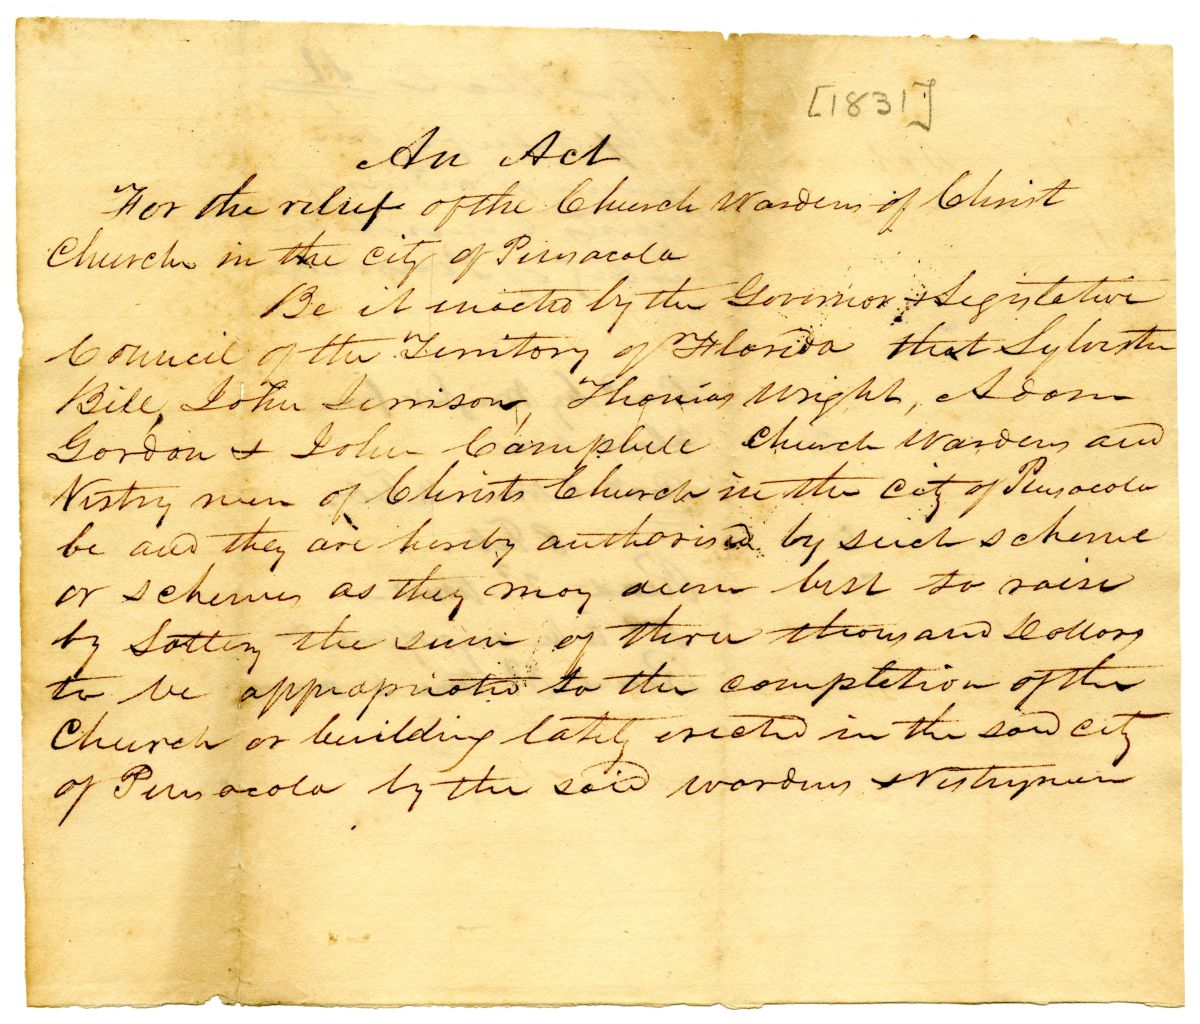 [1831]
An Act
For the relief of the Church Wardens of Christ
Church in the city of Pensacola
Be it enacted by the Governor & Legislative
Council of the Territory of Florida that Sylvester
Bill, John Jerrison, Thomas Wright, Adam
Gordon & John Campbell Church Wardens and
Vestry men of Christs Church in the city of Pensacola
be and they are hereby authorised by such scheme
or schemes as they may deem best to raise
by Lottery the sum of three thousand Dollars
to be appropriated to the completion of the
Church or building lately erected in the said city
of Pensacola by the said wardens & Vestrymen